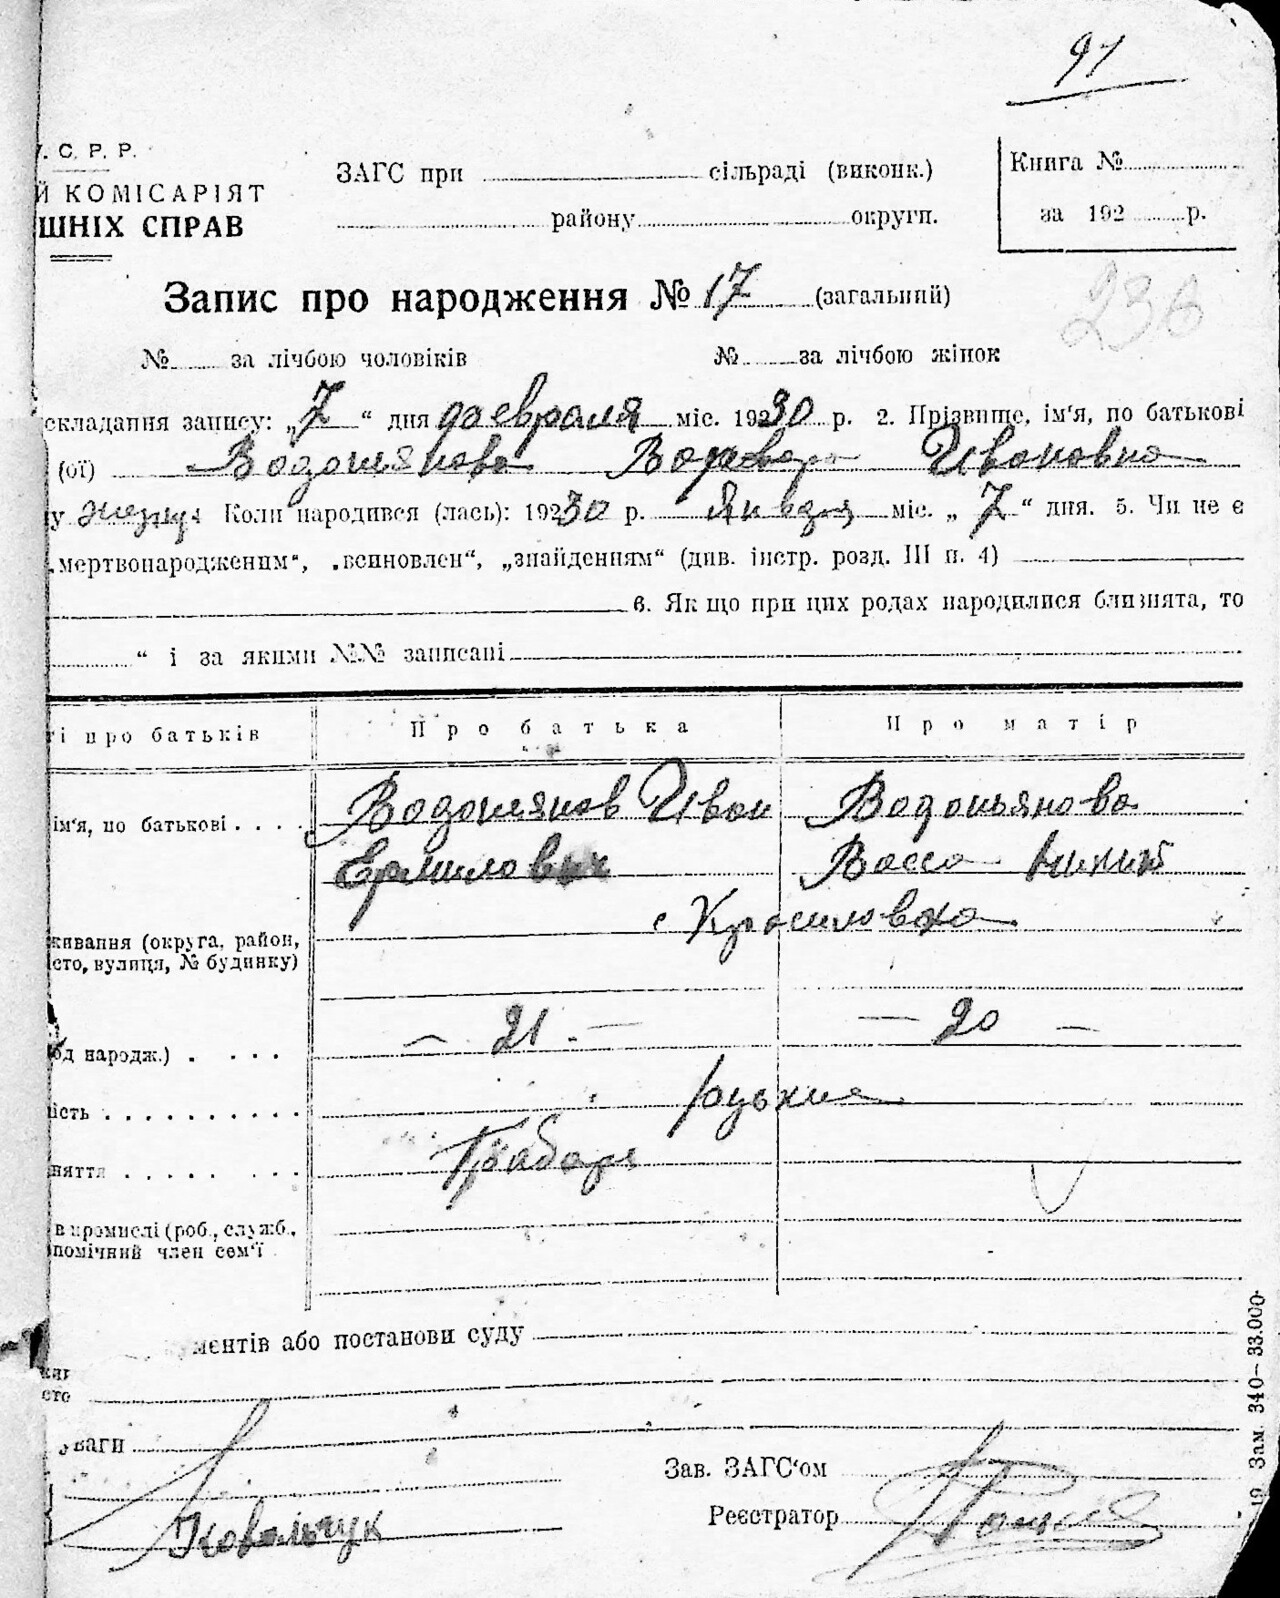 91
. С. Р. Р.
Й КОМІСАРІЯТ
ШНІХ СПРАВ
ЗАГС при сільраді (виконк.)
району округи.
Книга №
за 192 р.
Запис про народження № 17 (загальний)
236
№ за лічбою чоловіків № за лічбою жінок
складання запису: „7“ дня февраля міс. 1930 р. 2. Прізвище, ім'я, по батькові
(ої) Водопянова Варвара Ивановна
у Коли народився (лась): 1930 р. Января міс. „7“ дня. 5. Чи не є
„мертвонародженим“, „всиновлен“, „знайденням“ (див. інстр. розд. III п. 4)
6. Як що при цих родах народилися близнята, то
“ і за якими №№ записані
і про батьків Про батька Про матір
ім'я, по батькові Водопянов Иван Водопьянова
Ермилович Васса
с Красиловка
живання (округа, район,
сто, вулиця, № будинку)
од народж.) — 21 — — 20 —
ість руские
няття Грабарь
в промислі (роб., служб.,
помічний член сем'ї
ментів або постанови суду
сто
уваги
Зав. ЗАГС'ом
Реєстратор
Ковальчук
19. Зам. 340—33.000